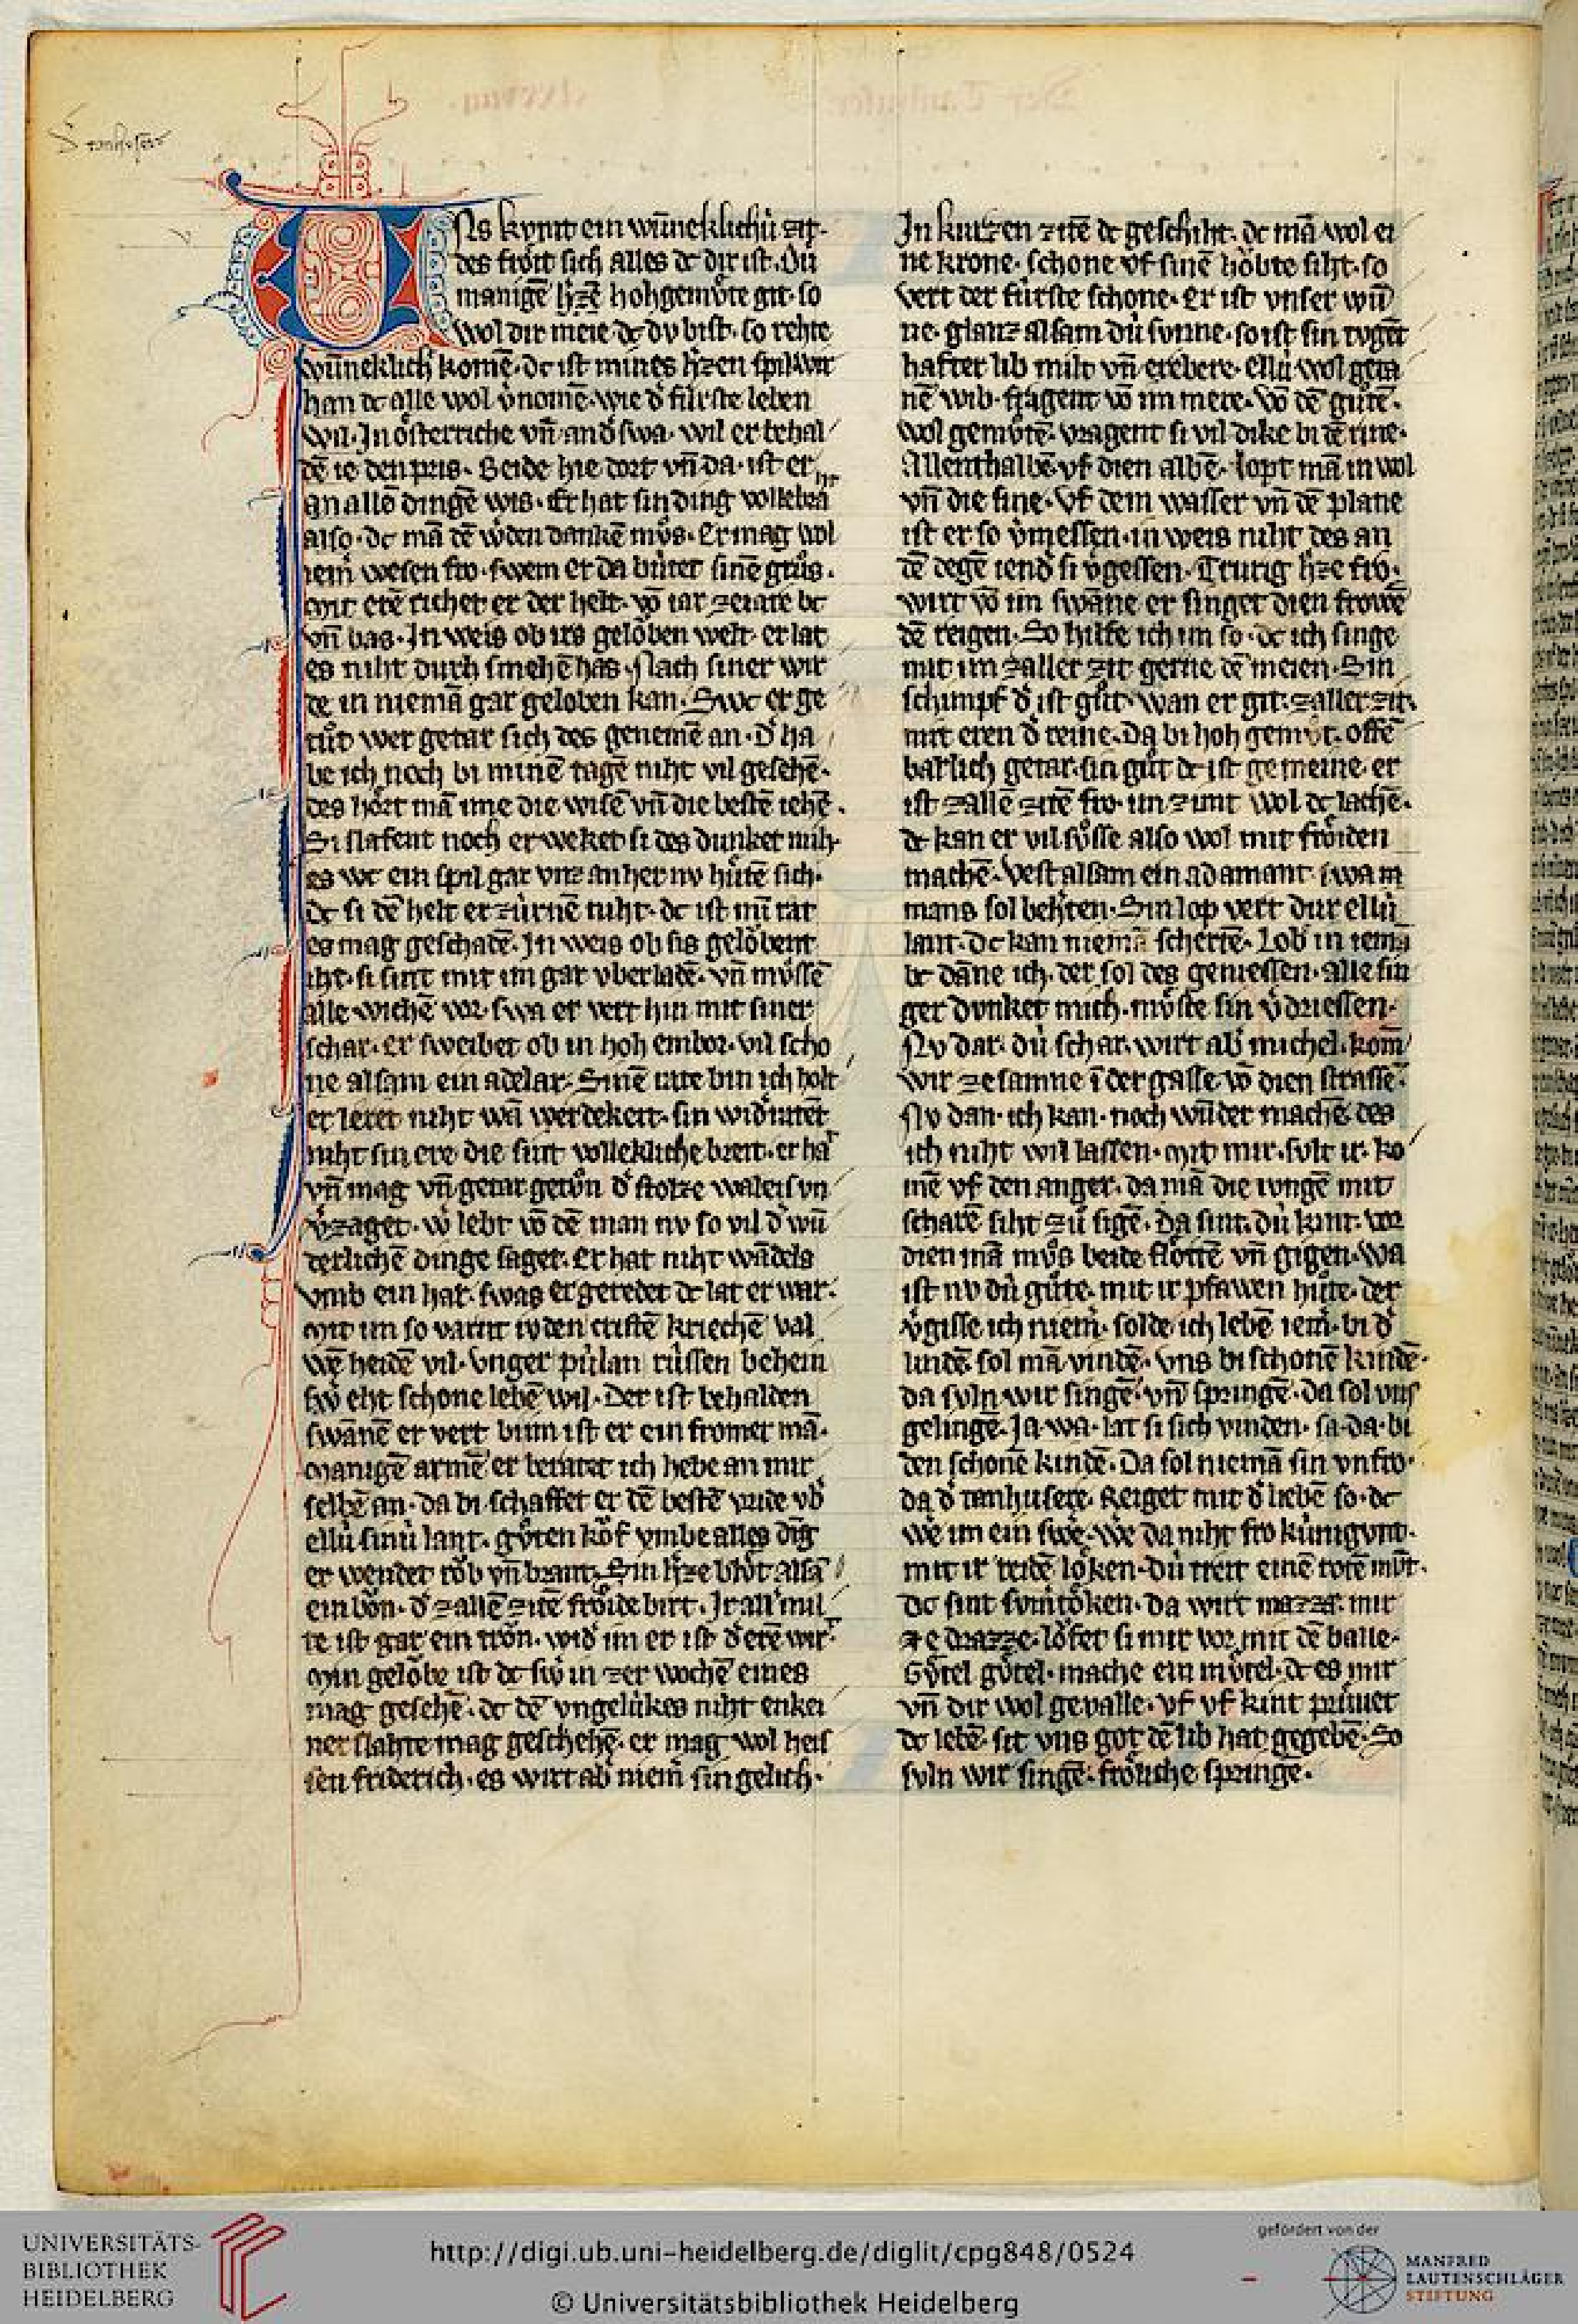 Tanhuser
UNs kvmt ein wu̅neklichu̍ zit.
des froͤit sich alles dc dir ist. Du̍
manige̅ h̾ze̅ hohgemuͤte git. so
wol dir meie dc dv bist. so rehte
wu̅neklich kome̅. dc ist mines h̾zen spil. wir
han dc alle wol v̾nome̅. wie d̾ fu̍rste leben
wil. In oͤsterriche vn̅ and̾swa. wil er behal
de̅ ie den pris. Beide hie dort vn̅ da. ist er
an alle̅ dinge̅ wis. Er hat sin ding vollebra
ht
also. dc ma̅ de̅ w̾den danke̅ mvͦs. Er mag wol
iem̾ wesen fro. swem er da bu̍tet sine̅ gruͦs.
Mit ere̅ richet er der helt. vo̅ iar ze iare bc
vn̅ bas. In weis ob irs geloͤben welt. er lat
es niht durch smehe̅ has. Nach siner wir
de in niema̅ gar geloben kan. Swc er ge
tuͦt wer getar sich des geneme̅ an. d̾ ha
be ich noch bi mine̅ tage̅ niht vil gesehe̅.
des hoͤrt ma̅ ime die wise̅ vn̅ die beste̅ iehe̅.
Si slafent noch er weket si des dunket mih.
es wc ein spil gar vnz an her nv huͤte̅ sich.
dc si de̅ helt erzu̍rne̅ niht. dc ist mi̅ rat
es mag geschade̅. In weis ob sis geloͤbent
iht. si sint mit im gar vberlade̅. vn̅ muͤsse̅
alle wiche̅ vor. swa er vert hin mit siner
schar. er sweibet ob in hoh embor. vil scho
ne alsam ein adelar. Sine̅ rate bin ich holt
er leret niht wa̅ werdekeit. sin wid̾raten̾t
niht sin ere die sint vollekliche breit. er hat
vn̅ mag vn̅ getar getuͦn d̾ stolze waleis vn
v̾zaget. w̾ lebt vo̅ de̅ man nv so vil d̾ wu̅
derliche̅ dinge saget. Er hat niht wa̅dels
vmb ein har. swas er geredet dc lat er war.
Mit im so varnt ivden criste̅ krieche̅ val
we̅ heide̅ vil. vnger pu̍lan ru̍ssen behein
sw̾ eht schone lebe̅ wil. Der ist behalden
swa̅ne̅ er vert bi im ist er ein fromer ma̅.
Manige̅ arme̅ er beratet ich hebe an mir
selbe̅ an. da bi schaffet er de̅ beste̅ vride vb̾
ellu̍ sinu̍ lant. guͦten koͮf vmbe alles ding
er wendet roͮb vn̅ brant. Sin h̾ze bluͤt alsa̅
ein boͮn. d̾ zalle̅ zite̅ froͤide birt. Ir all̾ mil
te ist gar ein troͮn. wid̾ im er ist d̾ ere̅ wirt.
Min geloͮbe ist dc sw̾ in zer woche̅ eines
mag gesehe̅. dc de̅ vngelu̍kes niht enkei
ner slahte mag geschehe̅. er mag wol heis
sen friderich. es wirt ab̾ niem̾ sin gelich.
In kurzen zite̅ dc geschiht. dc ma̅ wol ei
ne krone. schone vf sine̅ hoͮbte siht. so
vert der fu̍rste schone. Er ist vnser wu̅
ne. glanz alsam du̍ svnne. so ist sin tvgent
hafter lib milt vn̅ erebere. Ellu̍ wol geta
ne̅ wib. fragent vo̅ im mere. Vo̅ de̅ guͦte̅.
wol gemuͦte̅. vragent si vil dike bi de̅ rine.
Allenthalbe̅ vf dien albe̅. lopt ma̅ in wol
vn̅ die sine. Vf dem wasser vn̅ de̅ plane
ist er so v̾messen. in weis niht des an
de̅ degen iend̾ si v̾gessen. Trurig h̾ze fro.
wirt vo̅ im swa̅ne er singet dien frowe̅
de̅ reigen. So hilfe ich im so. dc ich singe
mit im zaller zit gerne de̅ meien. Sin
schimpf d̾ ist guͦt. wan er git. zaller zit.
mit eren d̾ reine. Da bi hoh gemuͦt. offe̅
barlich getar. sin guͦt dc ist gemeine. er
ist zalle̅ zite̅ fro. im zimt wol dc lache̅.
dc kan er vil suͤsse also wol mit froͤiden
mache̅. Vest alsam ein adamant. swa m
mans sol beh̾ten. Sin lop vert dur ellu̍
lant. dc kan niema̅ scherte̅. Lob in iema̅
bc da̅ne ich. der sol des geniessen. Alle sin
ger dvnket mich. muͤste sin v̾driessen.
Nv dar. du̍ schar. wirt ab̾ michel. kom̅
wir zesamne i̅ der gasse. vo̅ dien strasse̅.
Nv dan. ich kan. noch wu̅der mache̅. des
ich niht wil lassen. Mit mir. svlt ir. ko
me̅ vf den anger. da ma̅ die ivnge̅ mit
schare̅ siht zuͦ sige̅. Da sint. du̍ kint. vor
dien ma̅ muͦs beide floͤite̅ vn̅ gigen. Wa
ist nv du̍ guͦte. mit ir pfawen huͦte. der
v̾gisse ich niem̾. solde ich lebe̅ iem̾. bi d̾
linde̅ sol ma̅ vinde̅. vns bi schone̅ kinde̅.
da svln wir singe̅. vn̅ springe̅. da sol vns
gelinge̅. Ia. wa. lat si sich vinden. sa. da. bi
den schone̅ kinde̅. Da sol niema̅ sin vnfro.
da d̾ tanhusere. Reiget mit d̾ liebe̅ so. dc
we im ein swe̅. We da niht fro ku̍nigvnt.
mit ir reide̅ loͤken. du̍ treit eine̅ rote̅ mu̅t.
dc sint svmtoͤken. da wirt mazza. mit
ze drazze. loͮfet si mir vor mit de̅ balle.
Guͤtel guͤtel. mache ein muͤtel. dc es mir
vn̅ dir wol gevalle. vf vf kint pru̍uet
dc lebe̅. sit vns got de̅ lib hat gegebe̅. So
svln wir singe̅. froͤliche springe̅.
UNIVERSITÄTS-
BIBLIOTHEK
HEIDELBERG
http://digi.ub.uni-heidelberg.de/diglit/cpg848/0524
© Universitätsbibliothek Heidelberg
gefördert von der
MANFRED
LAUTENSCHLÄGER
STIFTUNG